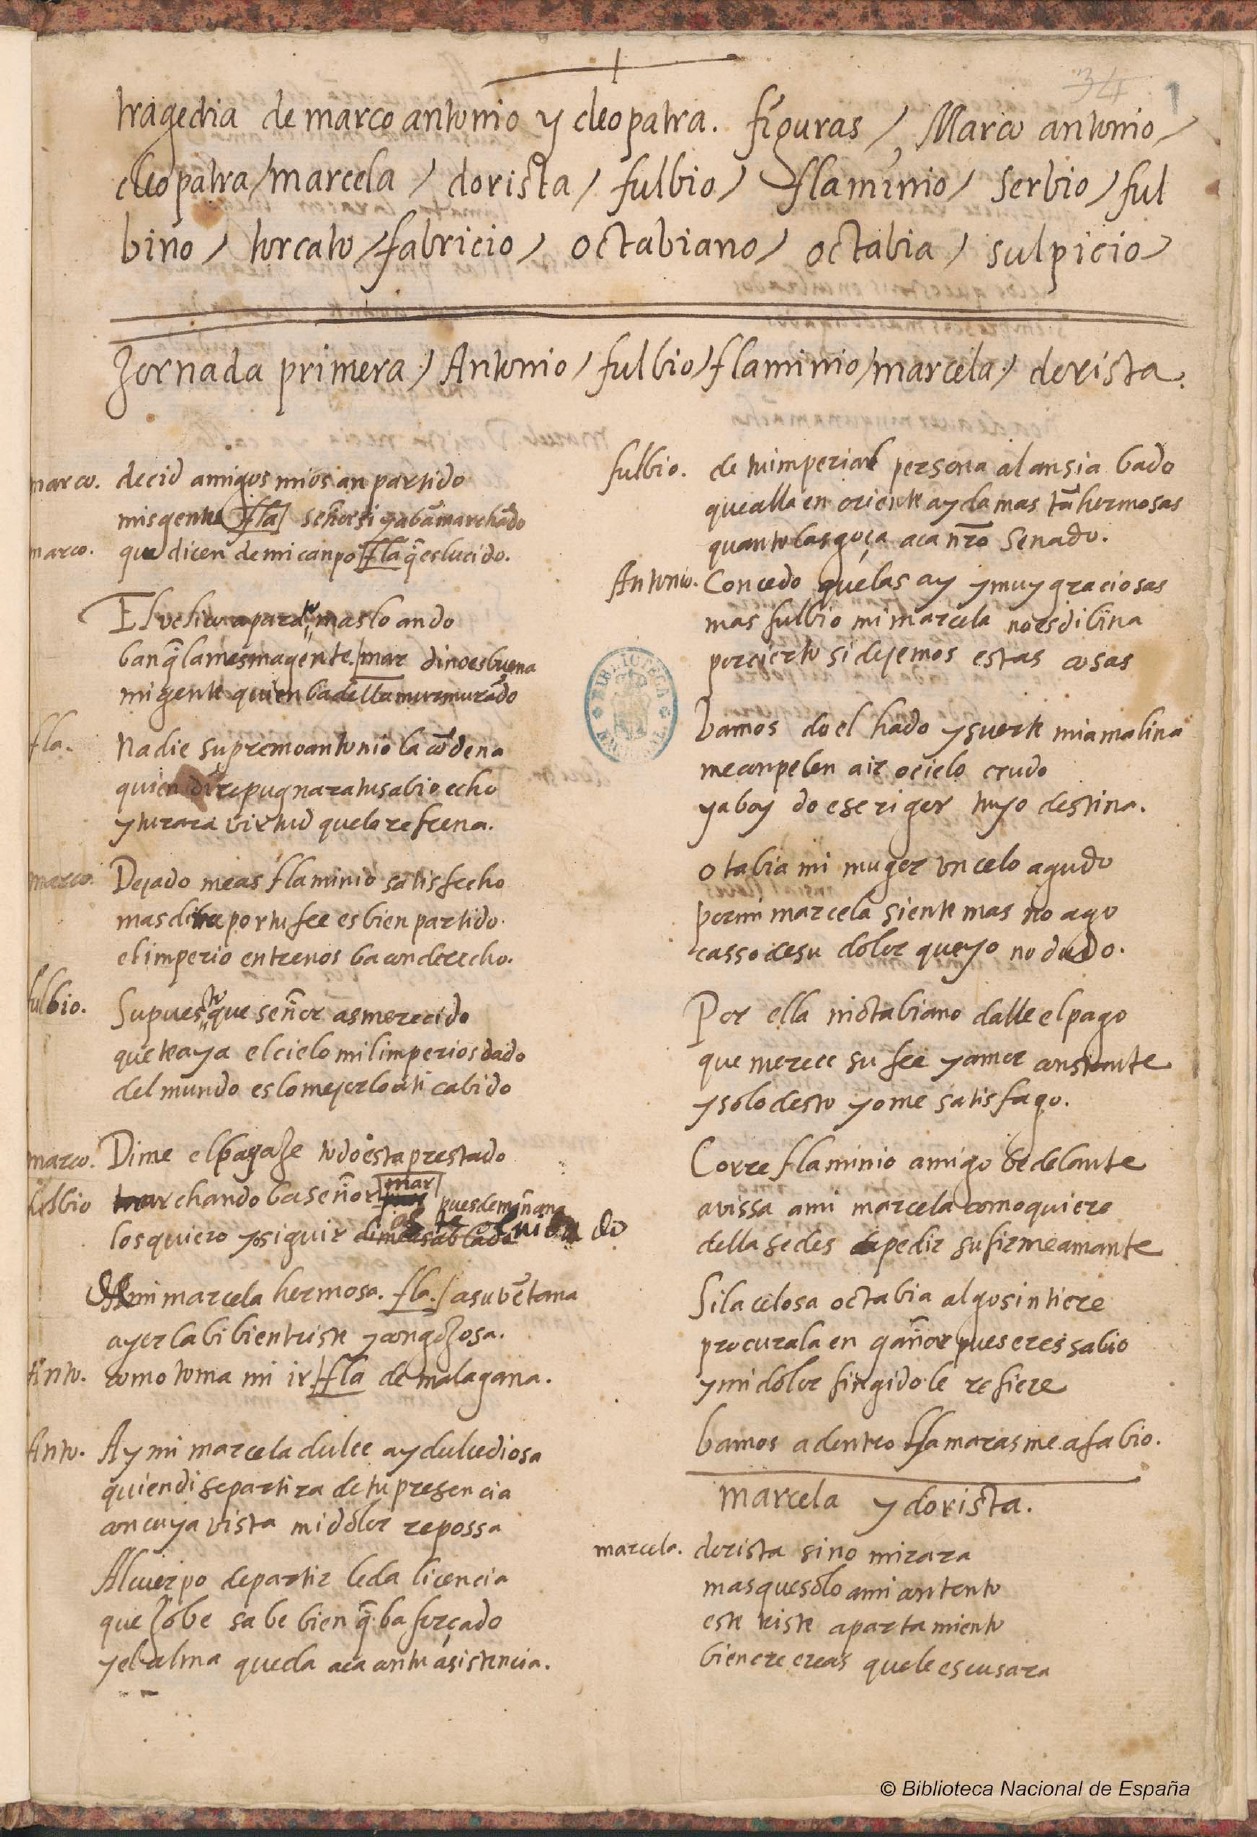 34 1
tragedia de marco antonio y cleopatra. figuras / Marco antonio /
cleopatra / marcela / dorista / fulbio / flaminio / serbio / ful
bino / torcato / fabricio / octabiano / octabia / sulpicio /
Jornada primera / Antonio / fulbio / flaminio / marcela / dorista.
marco. decid amigos mios an partido
mis gentes fla señor si q̃ aban marchādo
marco. que dicen de mi canpo fla q̃ es lucido.
El velico aparato mas loando
ban q̃ la mesma gente / mar di no es buena
mi gente quien ba della murmurādo
fla. Nadie supremo antonio la cōdena
quien di repugnara tu sabio echo
y tu rara virtud que lo refrena.
marco. Dejado meas flaminio satisfecho
mas di por tu fee es bien partido
el imperio entre nos ba con derecho.
fulbio. Supuesto que señor as merecido
que te aya el cielo mil imperios dado
del mundo es lo mejor lo a ti cabido
marco. Dime el bagaje todo esta prestado
fulbio marchando ba señor mar pues de mañana
los quiero yo seguir
mi marcela hermosa. fla. / a su bētana
ayer la bi bien triste y congojosa.
Anto. como toma mi ir / fla de mala gana.
Anto. Ay mi marcela dulce ay dulce diosa
quien di se partira de tu presencia
con cuya vista mi dolor repossa
Al cuerpo de partir le da licencia
que Jobe sabe bien q̃ ba forçado
y el alma queda aca con tu asistencia.
fulbio. de tu imperial persona al ansia bado
que alla en oriente ay damas tā hermosas
quanto las goça aca nr̃o senado.
Antonio. Concedo que las ay y muy graciosas
mas fulbio mi marcela no es dibina
por cierto si dejemos estas cosas
bamos do el hado y suerte mia malina
me conpelen a ir o cielo crudo
ya boy do ese rigor tuyo destina.
otabia mi muger un celo agudo
por mi marcela siente mas no ago
casso de su dolor que yo no dudo.
Por ella ni octabiano dalle el pago
que merece su fee y amor constante
y solo desto yo me satisfago.
Corre flaminio amigo be delante
avissa a mi marcela como quiero
della se des pedir su firme amante
Si la celosa octabia algo sintiere
procurala engañar pues eres sabio
y mi dolor fingido le refiere
bamos adentro llamaras me a fabio.
marcela y dorista.
marcela. dorista si no mirara
mas que solo a mi contento
este triste apartamiento
bien creereas que le escusara
BIBLIOTECA
© Biblioteca Nacional de España